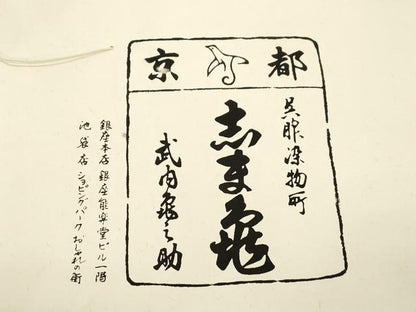 京都
呉服染物所
志ま亀
武内亀之助
銀座本店 銀座能楽堂ビル一階
池袋店 ショッピングパーク おしゃれの街